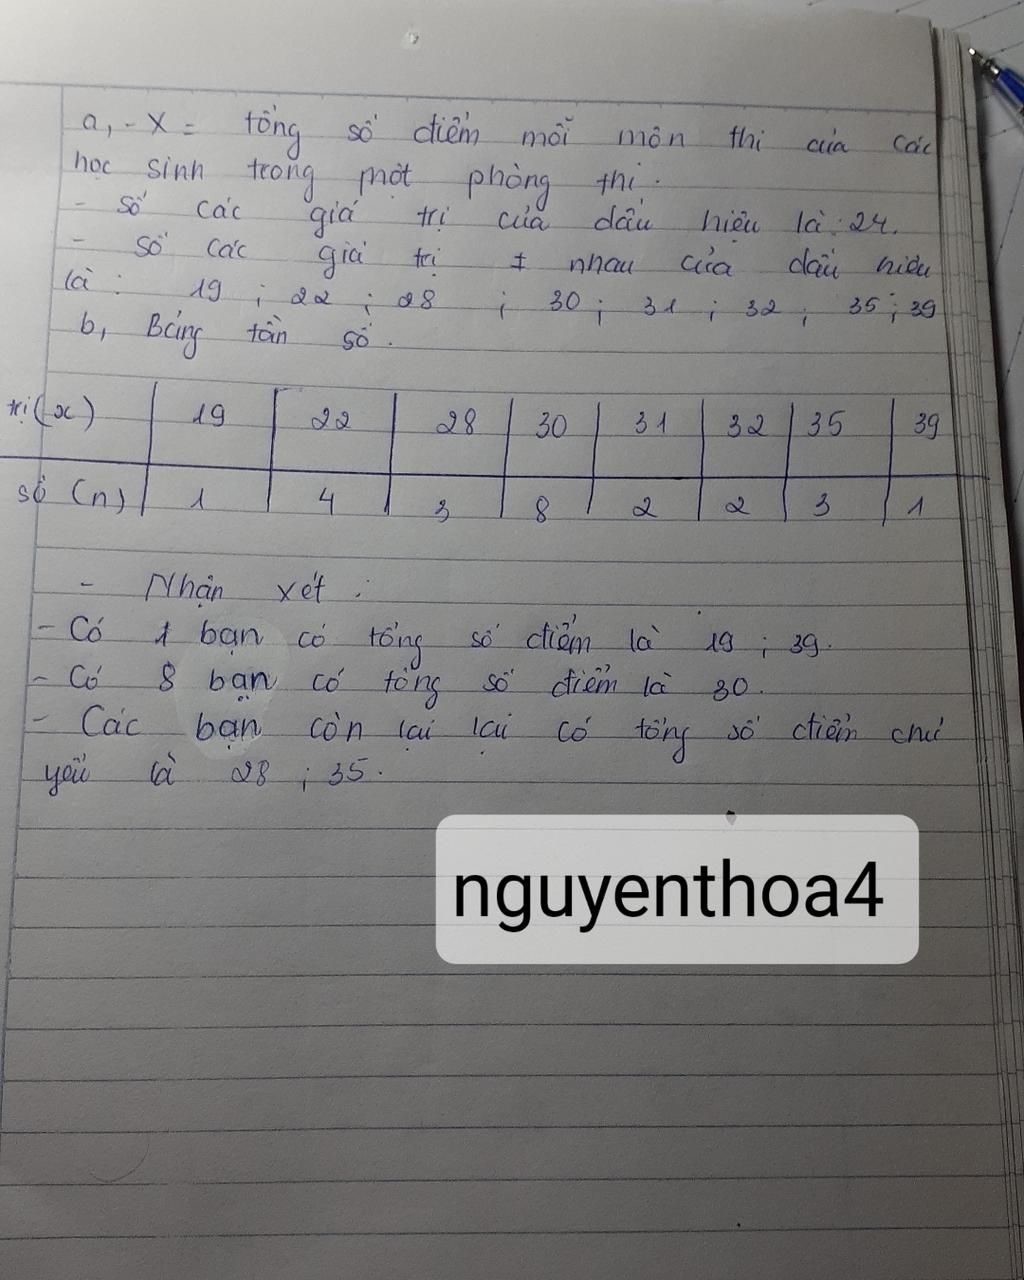 a, - X = tổng số điểm mỗi môn thi của các
học sinh trong một phòng thi.
- số các giá trị của dấu hiệu là : 24.
- số các giá trị ≠ nhau của dấu hiệu
là : 19 ; 22 ; 28 ; 30 ; 31 ; 32 ; 35 ; 39
b, Bảng tần số.
trị (x) 19 22 28 30 31 32 35 39
số (n) 1 4 3 8 2 2 3 1
- Nhận xét :
- Có 1 bạn có tổng số điểm là 19 ; 39.
- Có 8 bạn có tổng số điểm là 30.
- Các bạn còn lại lại có tổng số điểm chủ
yếu là 28 ; 35.
nguyenthoa4